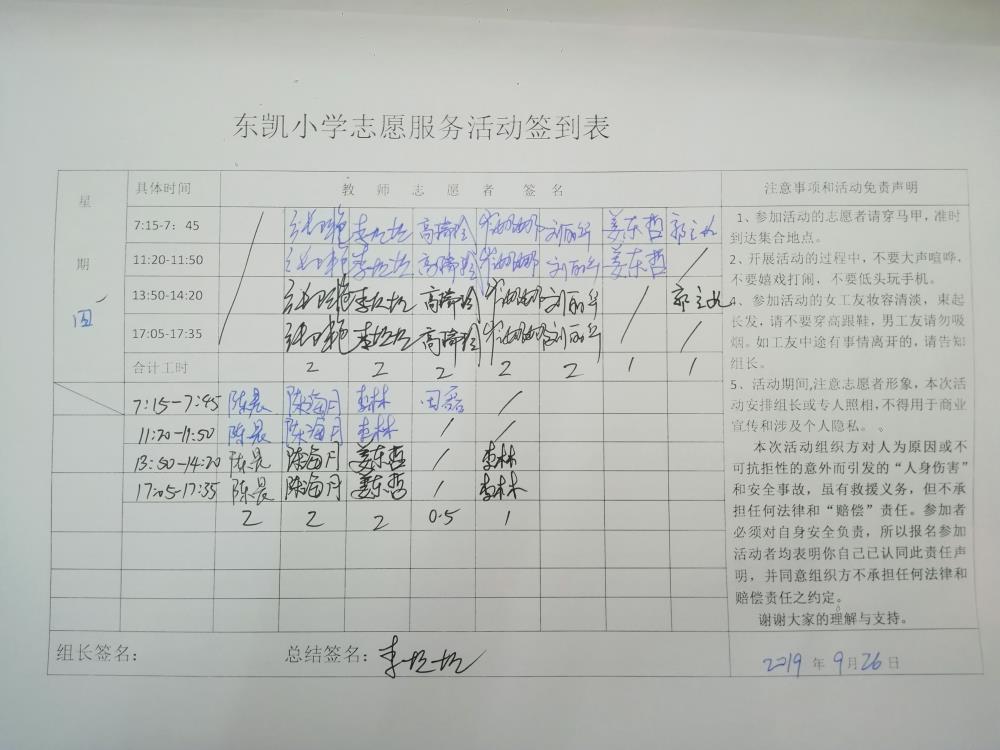 东凯小学志愿服务活动签到表
星期四
具体时间 教师志愿者签名
7:15-7：45 / 高 刘丽 姜东哲
11:20-11:50 高 刘丽 姜东哲 /
13:50-14:20 高 刘丽 /
17:05-17:35 高 刘丽 / /
合计工时 2 2 2 2 2 1 1
7:15-7:45 陈晨 陈海月 李林 /
11:20-11:50 陈晨 陈海月 李林 / /
13:50-14:20 陈晨 陈海月 姜东哲 / 李林
17:05-17:35 陈晨 陈海月 姜东哲 / 李林
2 2 2 0.5 1
组长签名： 总结签名：
注意事项和活动免责声明
1、参加活动的志愿者请穿马甲，准时
到达集合地点。
2、开展活动的过程中，不要大声喧哗，
不要嬉戏打闹，不要低头玩手机。
4、参加活动的女工友妆容清淡，束起
长发，请不要穿高跟鞋，男工友请勿吸
烟。如工友中途有事情离开的，请告知
组长。
5、活动期间,注意志愿者形象，本次活
动安排组长或专人照相,不得用于商业
宣传和涉及个人隐私。。
本次活动组织方对人为原因或不
可抗拒性的意外而引发的“人身伤害”
和安全事故，虽有救援义务，但不承
担任何法律和“赔偿”责任。参加者
必须对自身安全负责，所以报名参加
活动者均表明你自己已认同此责任声
明，并同意组织方不承担任何法律和
赔偿责任之约定。
谢谢大家的理解与支持。
2019 年 9 月 26 日